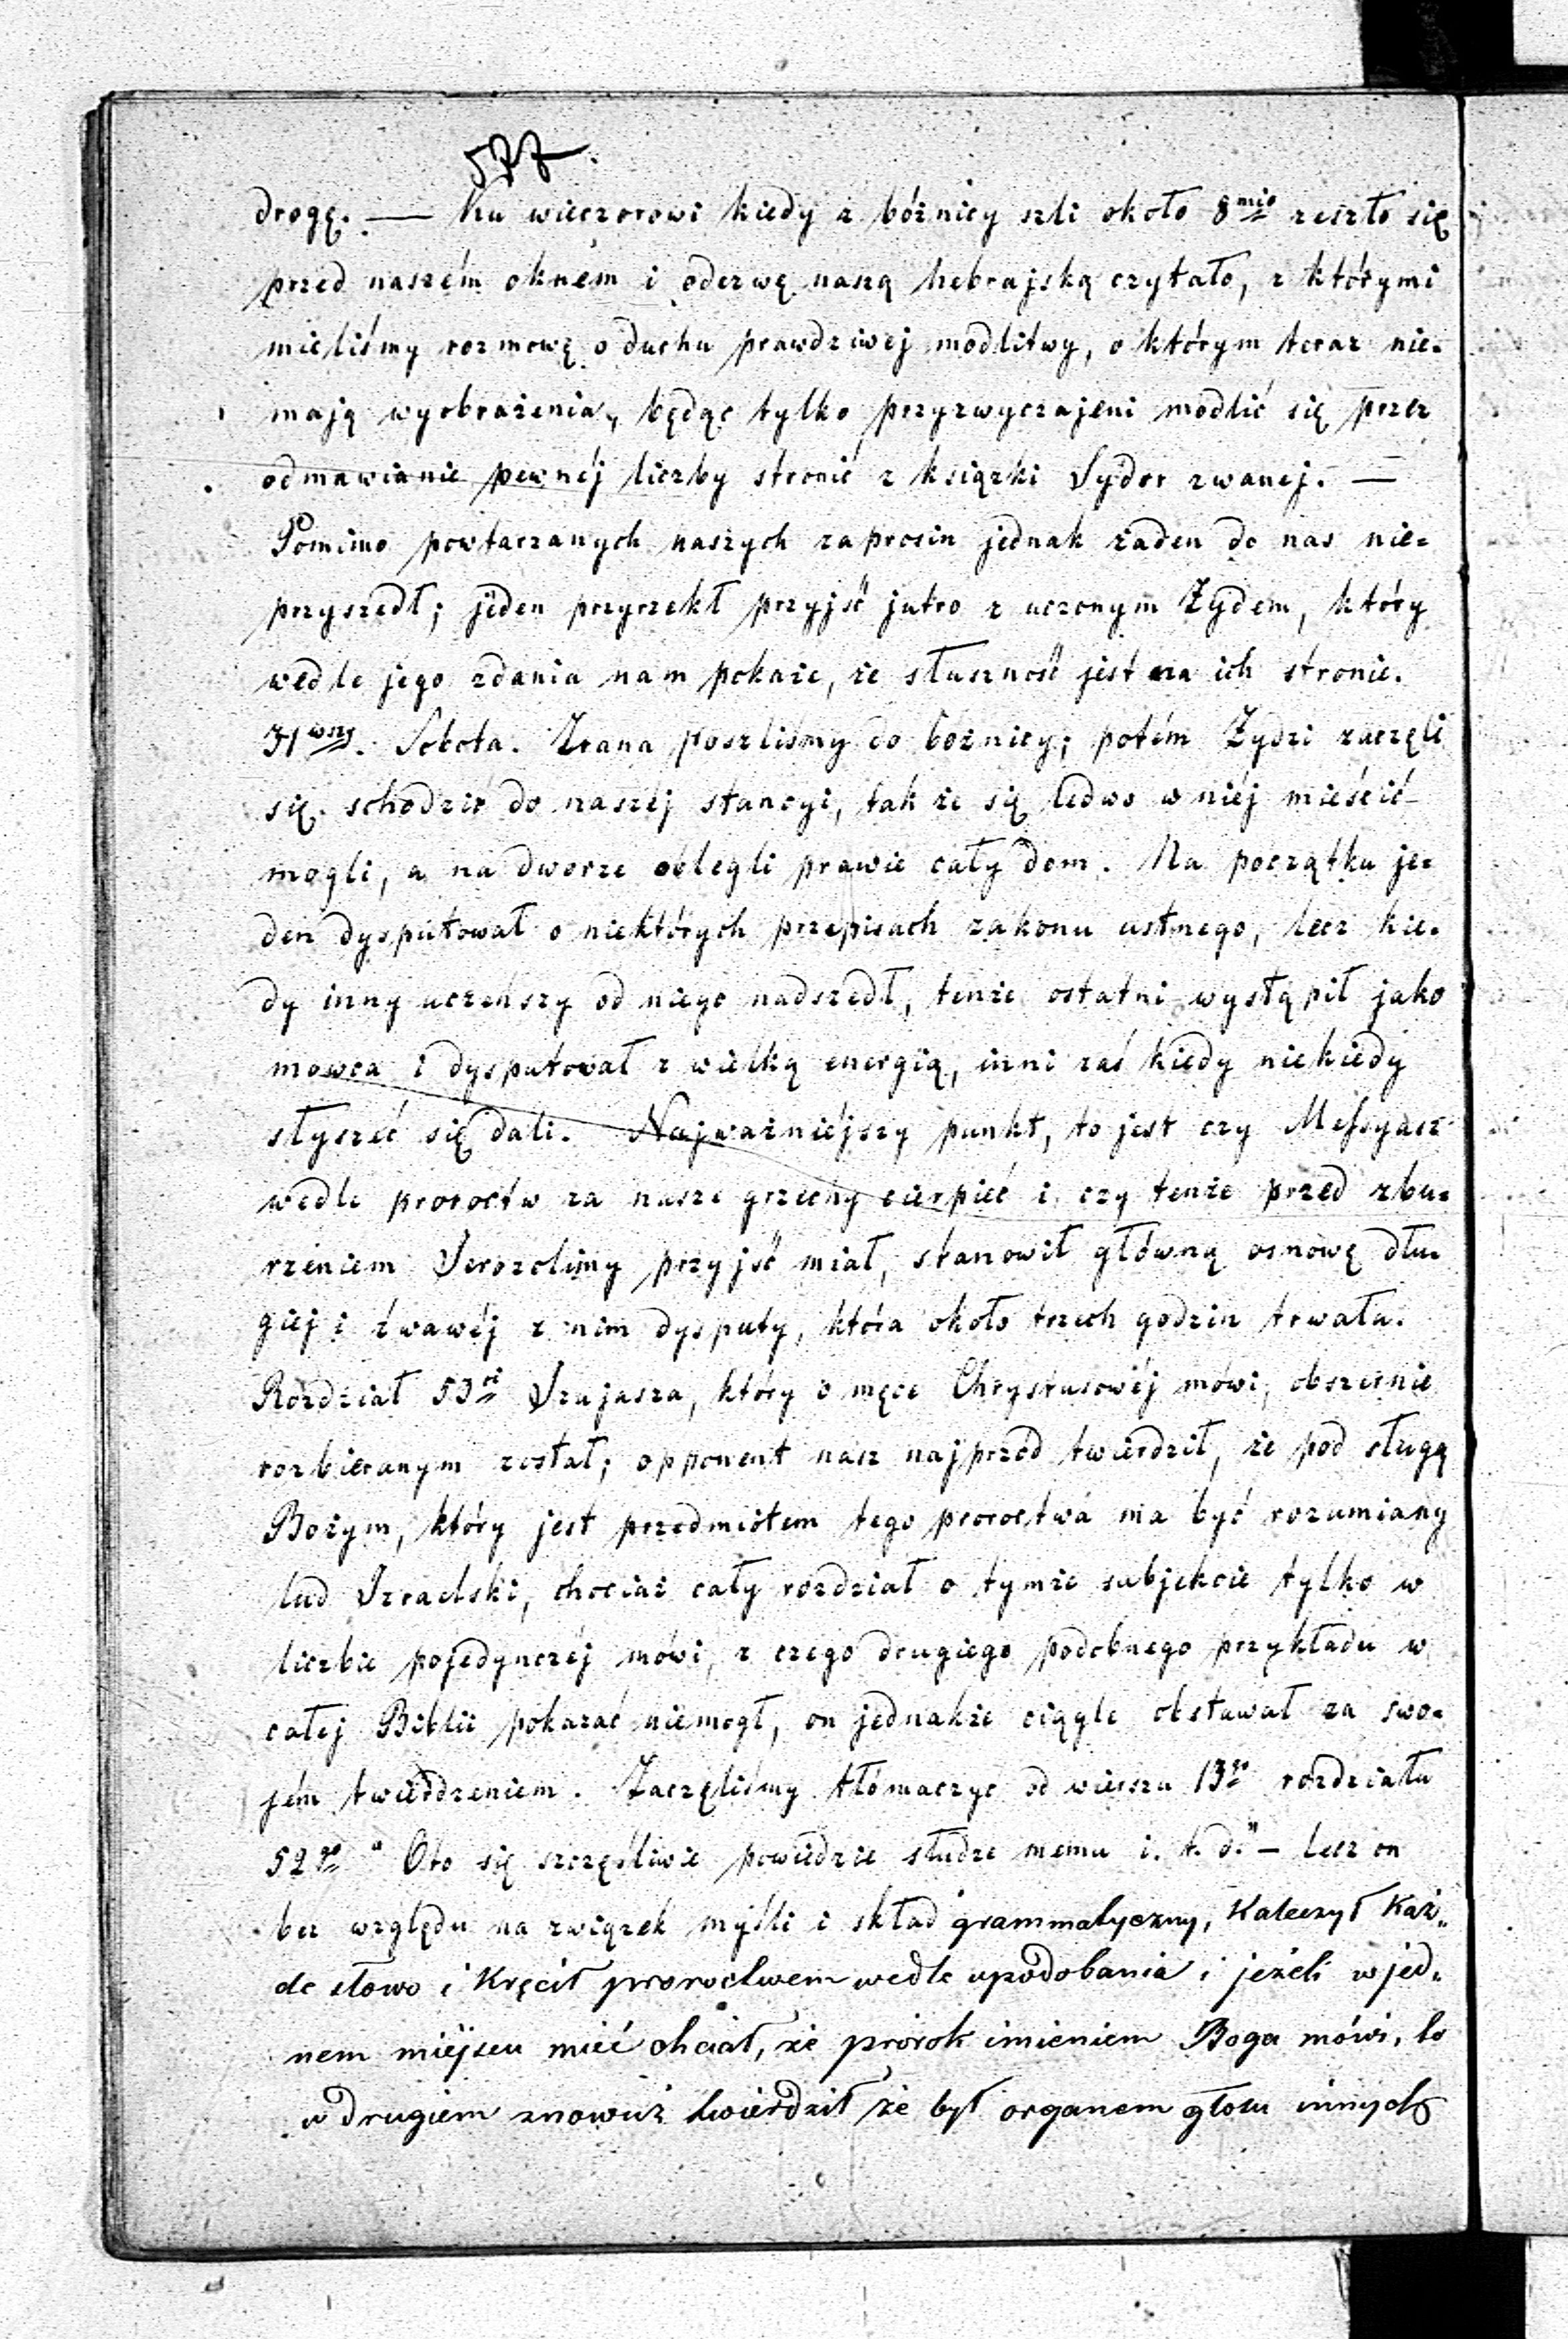 577.
drogę. — Ku wieczorowi kiedy z bóżnicy szli około 8mio zeszło się
przed naszém oknem i oderwę naszą hebrajską czytało, z którymi
mieliśmy rozmowę o duchu prawdziwej modlitwy, o którym teraz nie-
mają wyobrażenia, będąc tylko przyzwyczajeni modlić się przez
odmawianie pewnéj liczby stronic z książki Sydor zwanej. —
Pomimo powtarzanych naszych zaprosin jednak żaden do nas nie-
przyszedł; jeden przyrzekł przyjść jutro z uczonym Żydem, który
wedle jego zdania nam pokaże, że słuszność jest na ich stronie.
31wszy. Sobota. Zrana poszliśmy do bóżnicy; potém Żydzi zaczęli
się schodzić do naszéj stancyi, tak że się ledwo w niéj mieścić
mogli, a na dworze oblegli prawie cały dom. Na początku je-
den dysputował o niektórych przepisach zakonu ustnego, lecz kie-
dy inny uczeńszy od niego nadszedł, tenże ostatni wystąpił jako
mowca i dysputował z wielką energią, inni zaś kiedy niekiedy
słyszéć się dali. Najważniéjszy punkt, to jest czy Messyasz
wedle proroctw za nasze grzechy cierpiéć i czy tenże przed zbu-
rzeniem Jerozolimy przyjść miał, stanowił główną osnowę dłu-
giej i żwawéj z nim dysputy, która około trzech godzin trwała.
Rozdział 53ci Izajasza, który o męce Chrystusowéj mówi, obszernie
rozbieranym został; opponent nasz najprzód twierdził, że pod sługą
Bożym, który jest przedmiotem tego proroctwa ma być rozumiany
lud Izraelski, chociaż cały rozdział o tymże subjekcie tylko w
liczbie pojedynczéj mówi, z czego drugiego podobnego przykładu w
całej Biblii pokazać niemogł, on jednakże ciągle obstawał za swo-
jém twierdzeniem. Zaczęliśmy tłómaczyc od wiersza 13go rozdziału
52go "Oto się szczęśliwie powiedzie słudze memu i. t. d." — lecz on
bez względu na związek myśli i skład grammatyczny, Kaleczył Każ-
de słowo i Kręcił proroctwem wedle upodobania i jeżeli w jed-
nem miéjscu miéć chciał, że prorok imieniem Boga mówi, to
w drugiem znowuż twierdził że był organem głosu innych